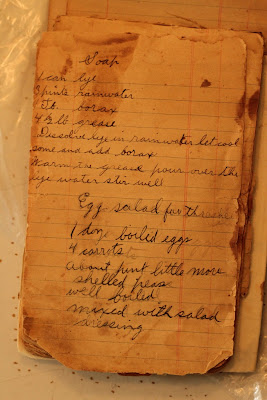 Soap
1 can lye
3 pints rainwater
borax
4 ½ lb grease
Dissolve lye in rainwater let cool
some and add borax
Warm the grease pour over the
lye water stir well
Egg salad for
1 doz boiled eggs
4 carrots
about pint little more
shelled peas
well boiled
mixed with salad
dressing